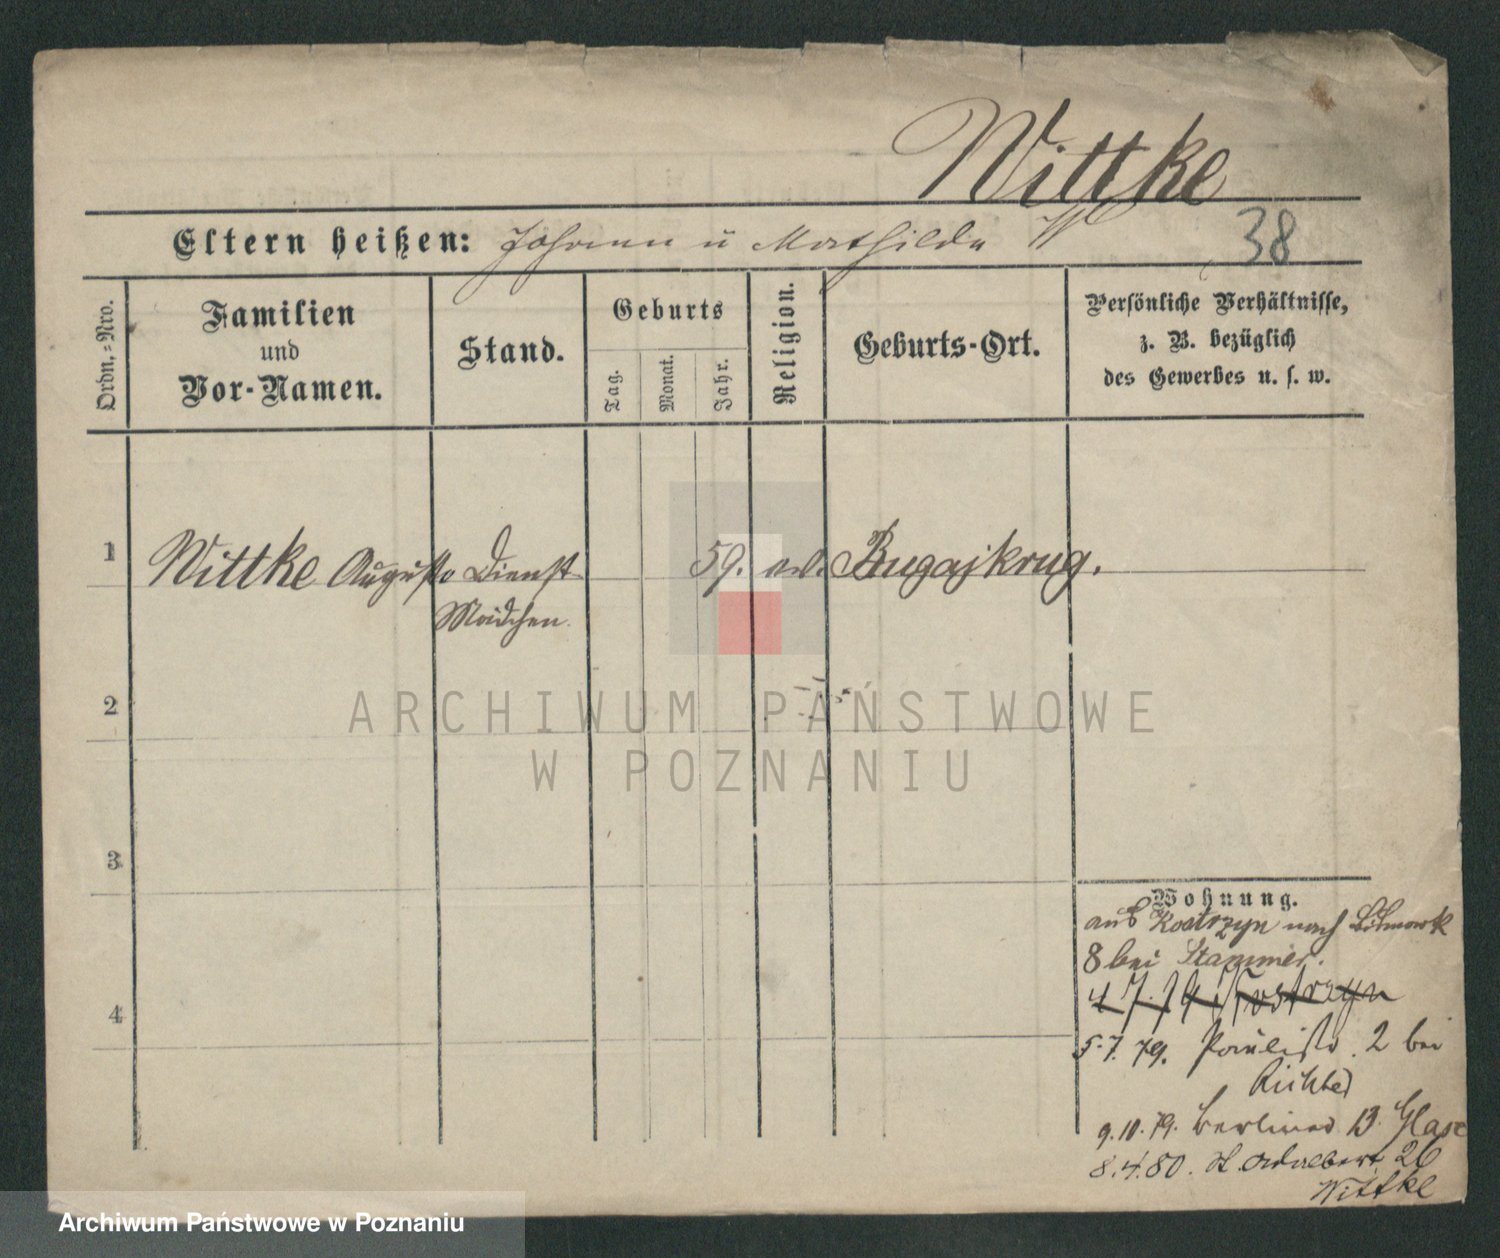 Wittke
Eltern heißen: Johann u Mathilde W
38
Ordn.-Nro.
Familien
und
Vor-Namen.
Stand.
Geburts
Tag.
Monat.
Jahr.
Religion.
Geburts-Ort.
Persönliche Verhältnisse,
z. B. bezüglich
des Gewerbes u. s. w.
1 Wittke Auguste Dienst 59. ev. Bugajkrug.
Mädchen.
2
3
4
Wohnung.
aus Kostrzyn nach Bismark
8 bei Stammer.
4 7. 79 Kostrzyn
5.7. 79. Paulistr. 2 bei
Richter
9.10.79. Berliner 13. Glase
8.4.80. St. Adalbert 26
Wittke
ARCHIWUM PAŃSTWOWE
W POZNANIU
Archiwum Państwowe w Poznaniu